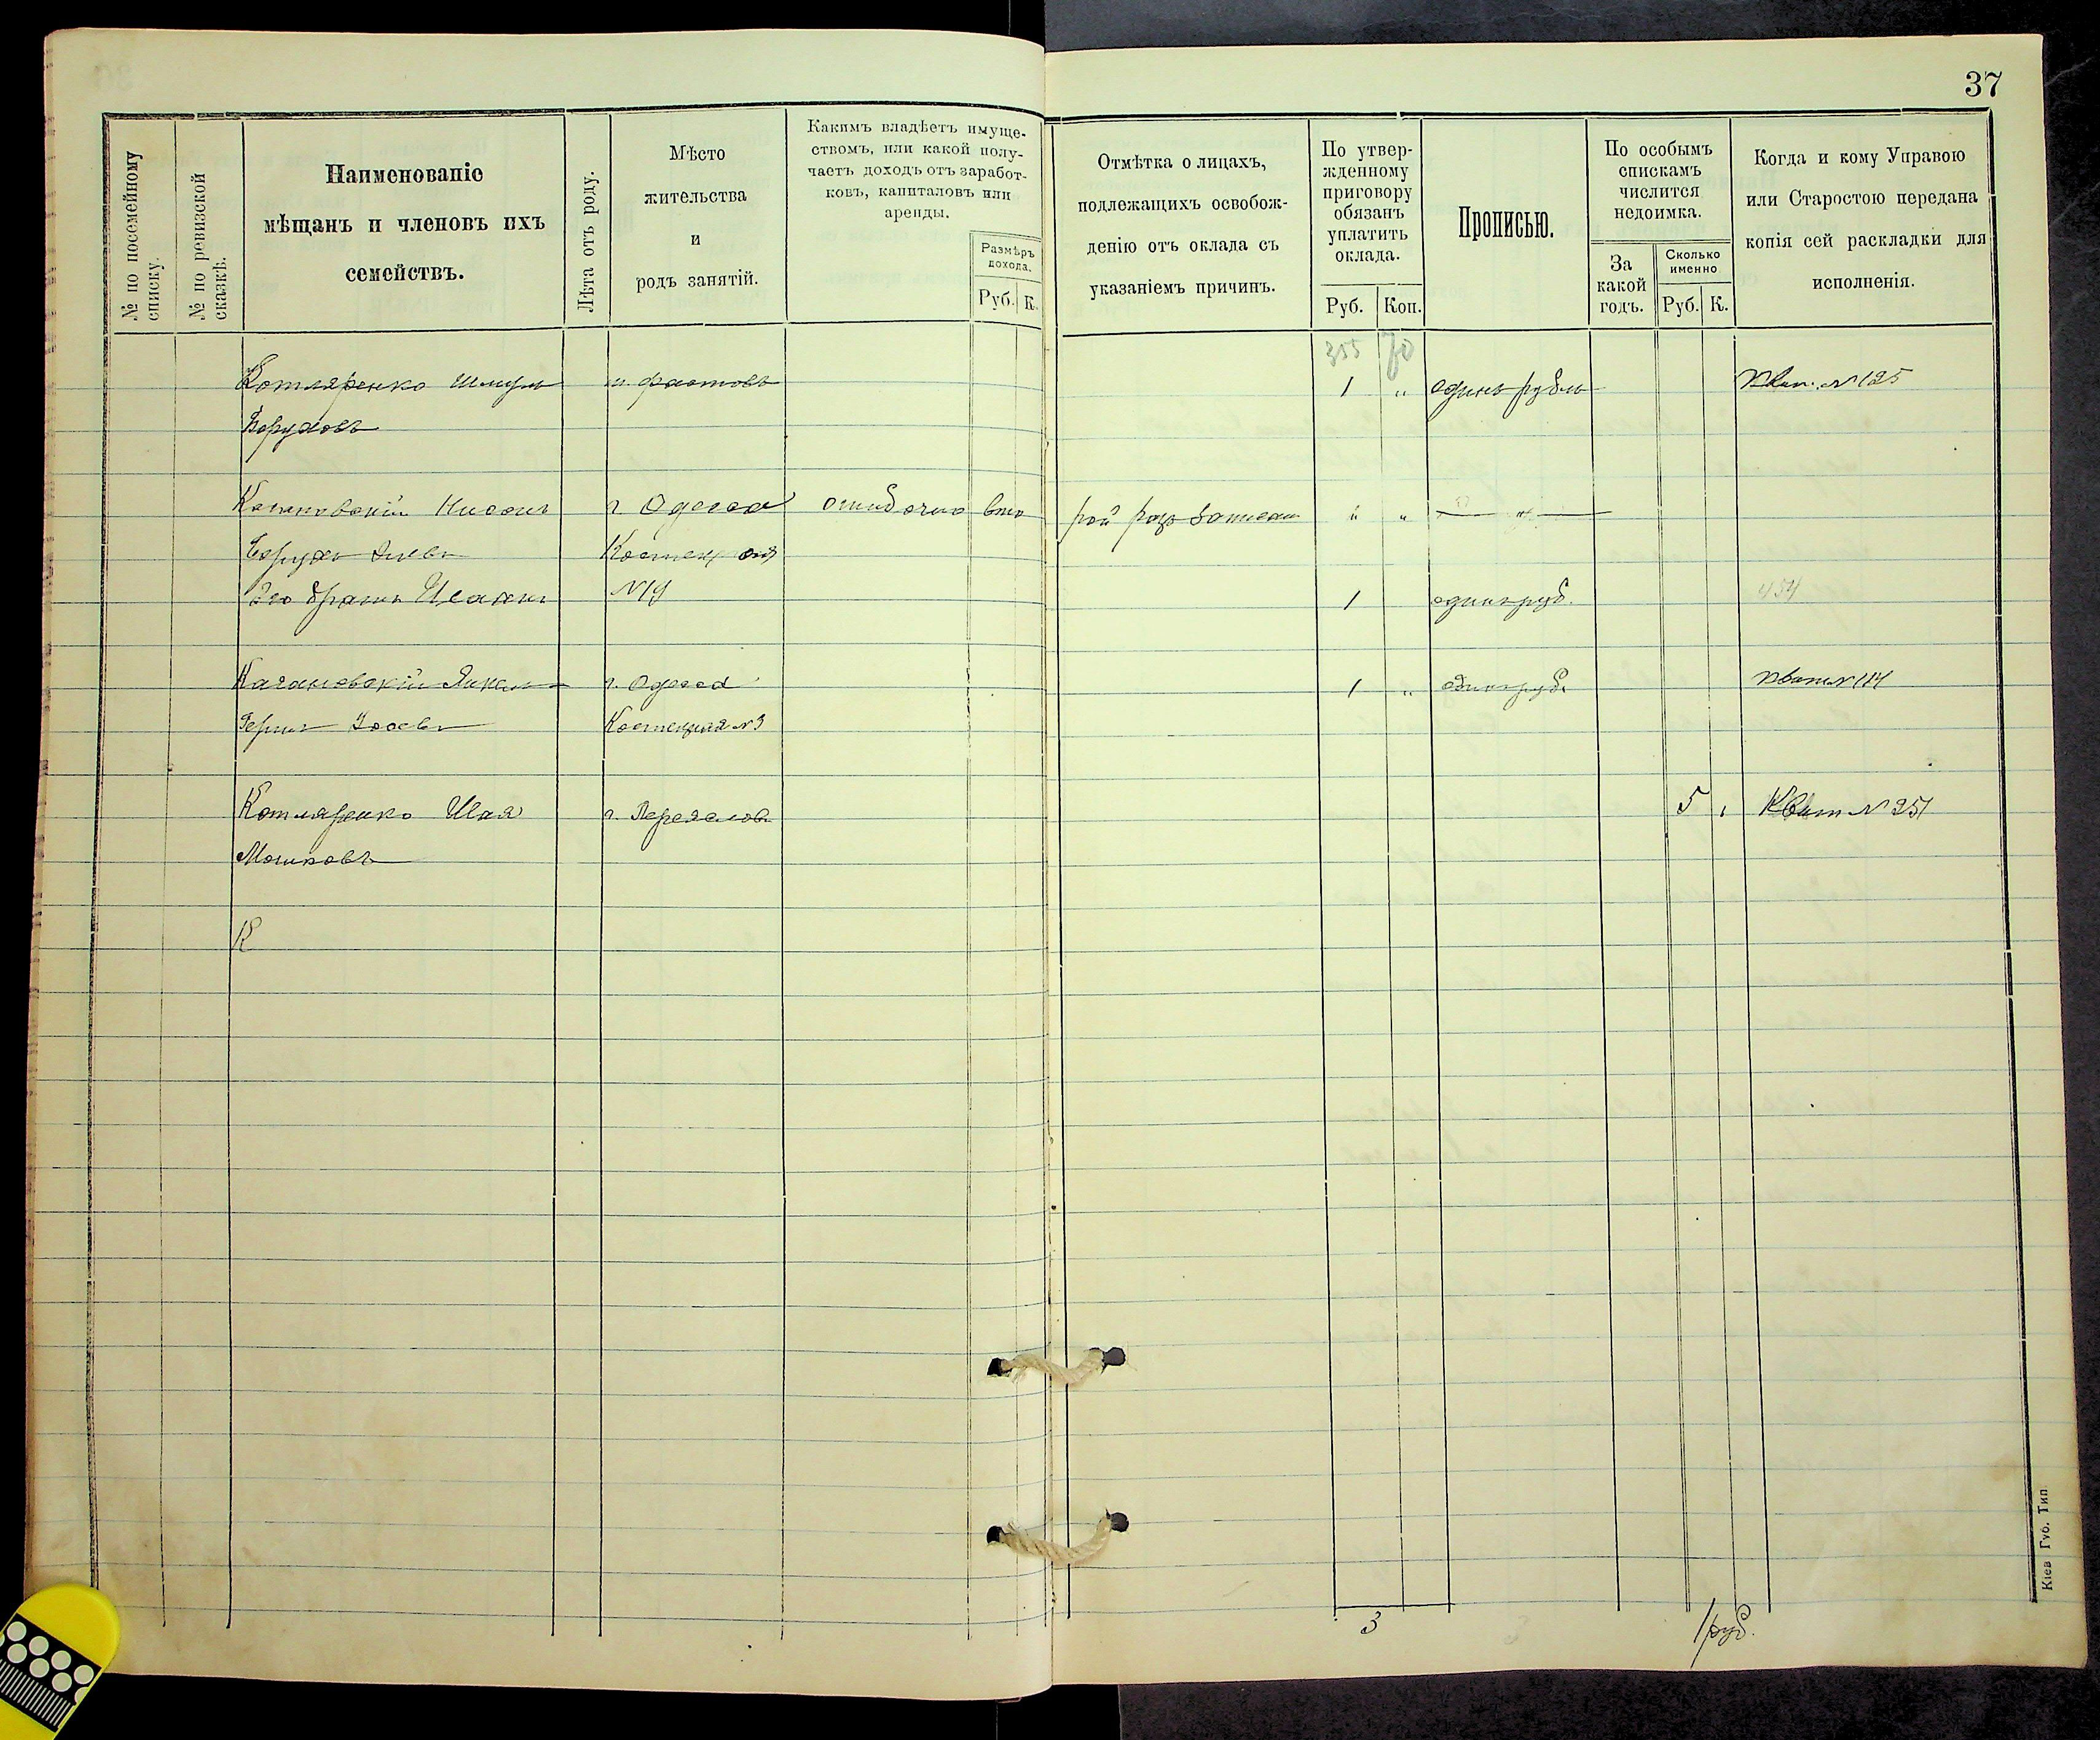 37
№ по посемейному списку.
№ по ревизской сказкѣ.
Наименованіе
мѣщанъ и членовъ ихъ
семействъ.
Лѣта отъ роду.
Мѣсто
жительства
и
родъ занятій.
Какимъ владѣетъ имуще-
ствомъ, или какой полу-
чаетъ доходъ отъ заработ-
ковъ, капиталовъ или
аренды.
Размѣръ
дохода.
Руб. К.
Отмѣтка о лицахъ,
подлежащихъ освобож-
денію отъ оклада съ
указаніемъ причинъ.
По утвер-
жденному
приговору
обязанъ
уплатить
оклада.
Руб. Коп.
Прописью.
По особымъ
спискамъ
числится
недоимка.
За
какой
годъ.
Сколько
именно
Руб. К.
Когда и кому Управою
или Старостою передана
копія сей раскладки для
исполненія.
355 70
Котляренко Шмуль м. Фастовъ 1 " одинъ рубль Квит. № 125
Боруховъ
Нисонъ г. Одесса ошибочно вто рой разъ записан " " "
Борухъ
Его братъ Исаакъ №19 1 один руб. 454
Качановскій Янкель г. Одесса 1 " один руб. Квит №184
Гершъ Костецкая №3
Котляренко Шая г. Переяславъ 5 " Квит № 251
Мошковъ
К
3
1 руб.
Кіев Губ. Тип.